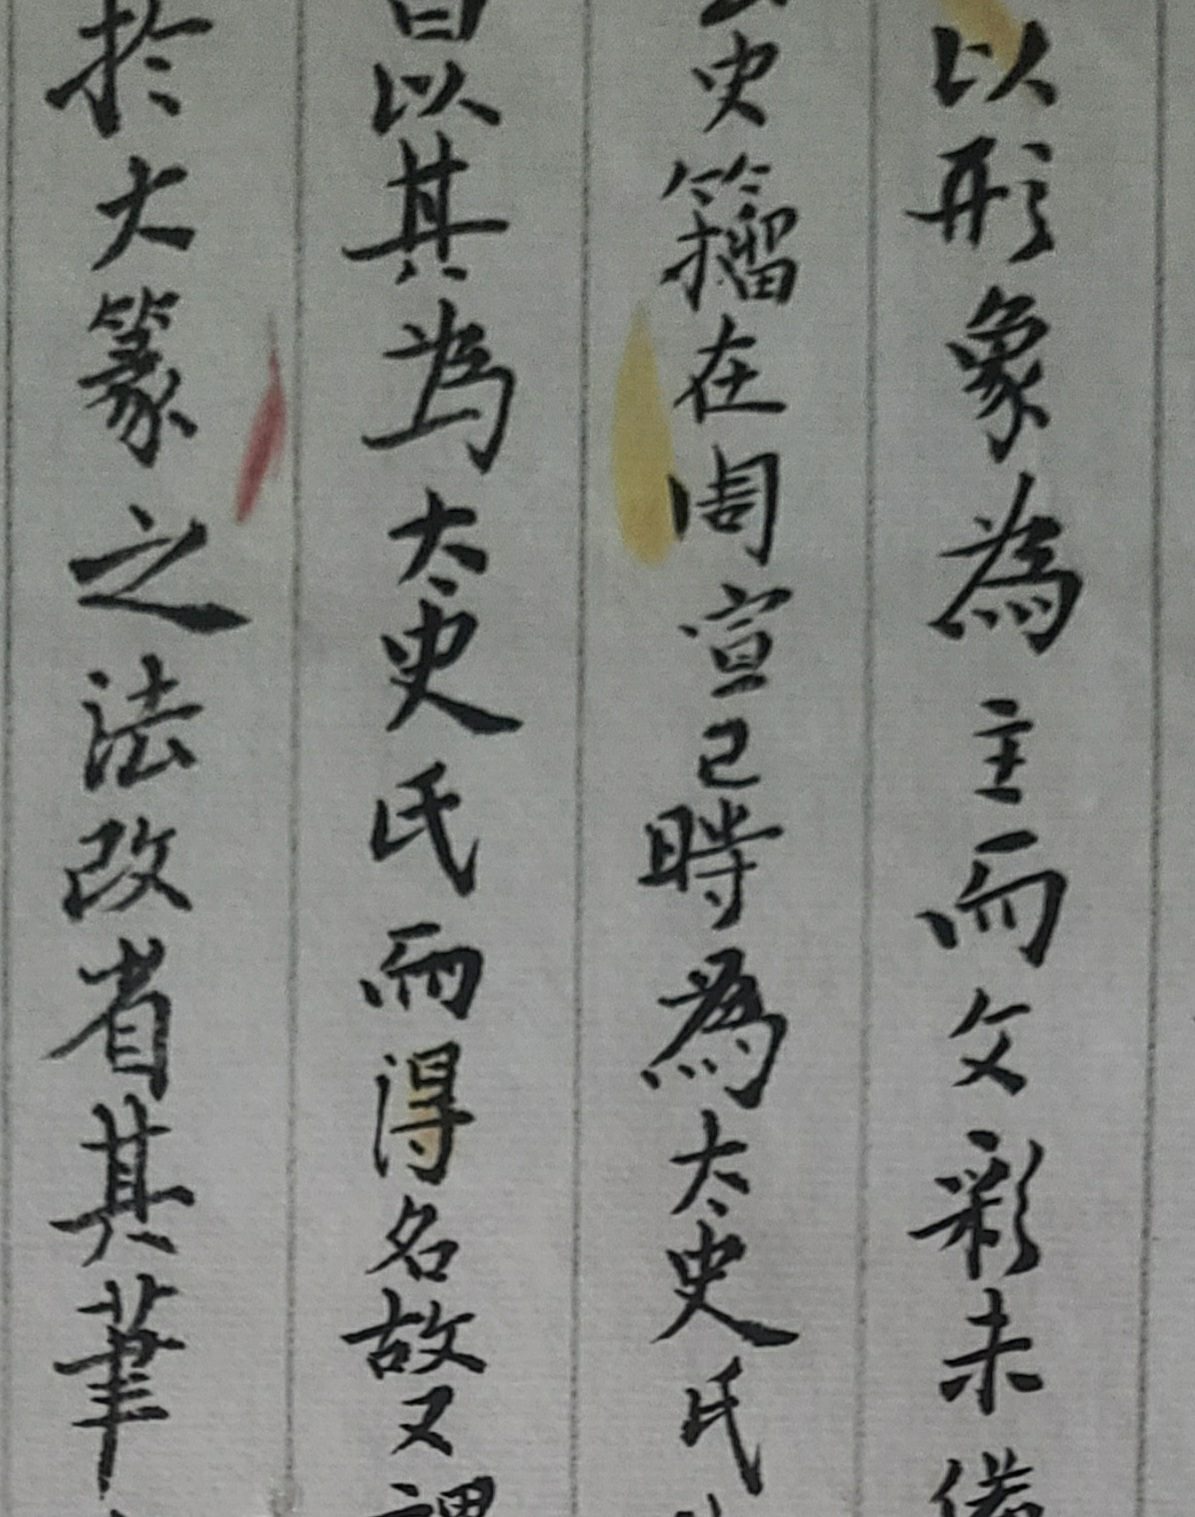 以形象為主而文彩未備
史籀在周宣已時為太史氏
曰以其為太史氏而得名故又謂
於大篆之法改省其筆